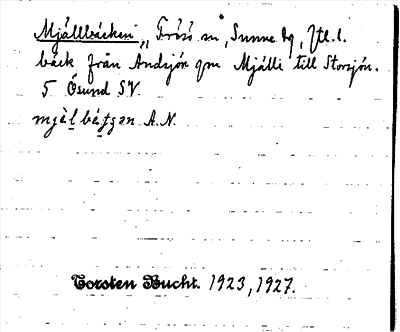 Mjällbäcken, Frösö sn, Sunne tg, Jtl. l.
bäck från Andsjön gm Mjälle till Storsjön.
5 Ösund SV.
mjèl bétʃen A.N.
Torsten Bucht. 1923, 1927.